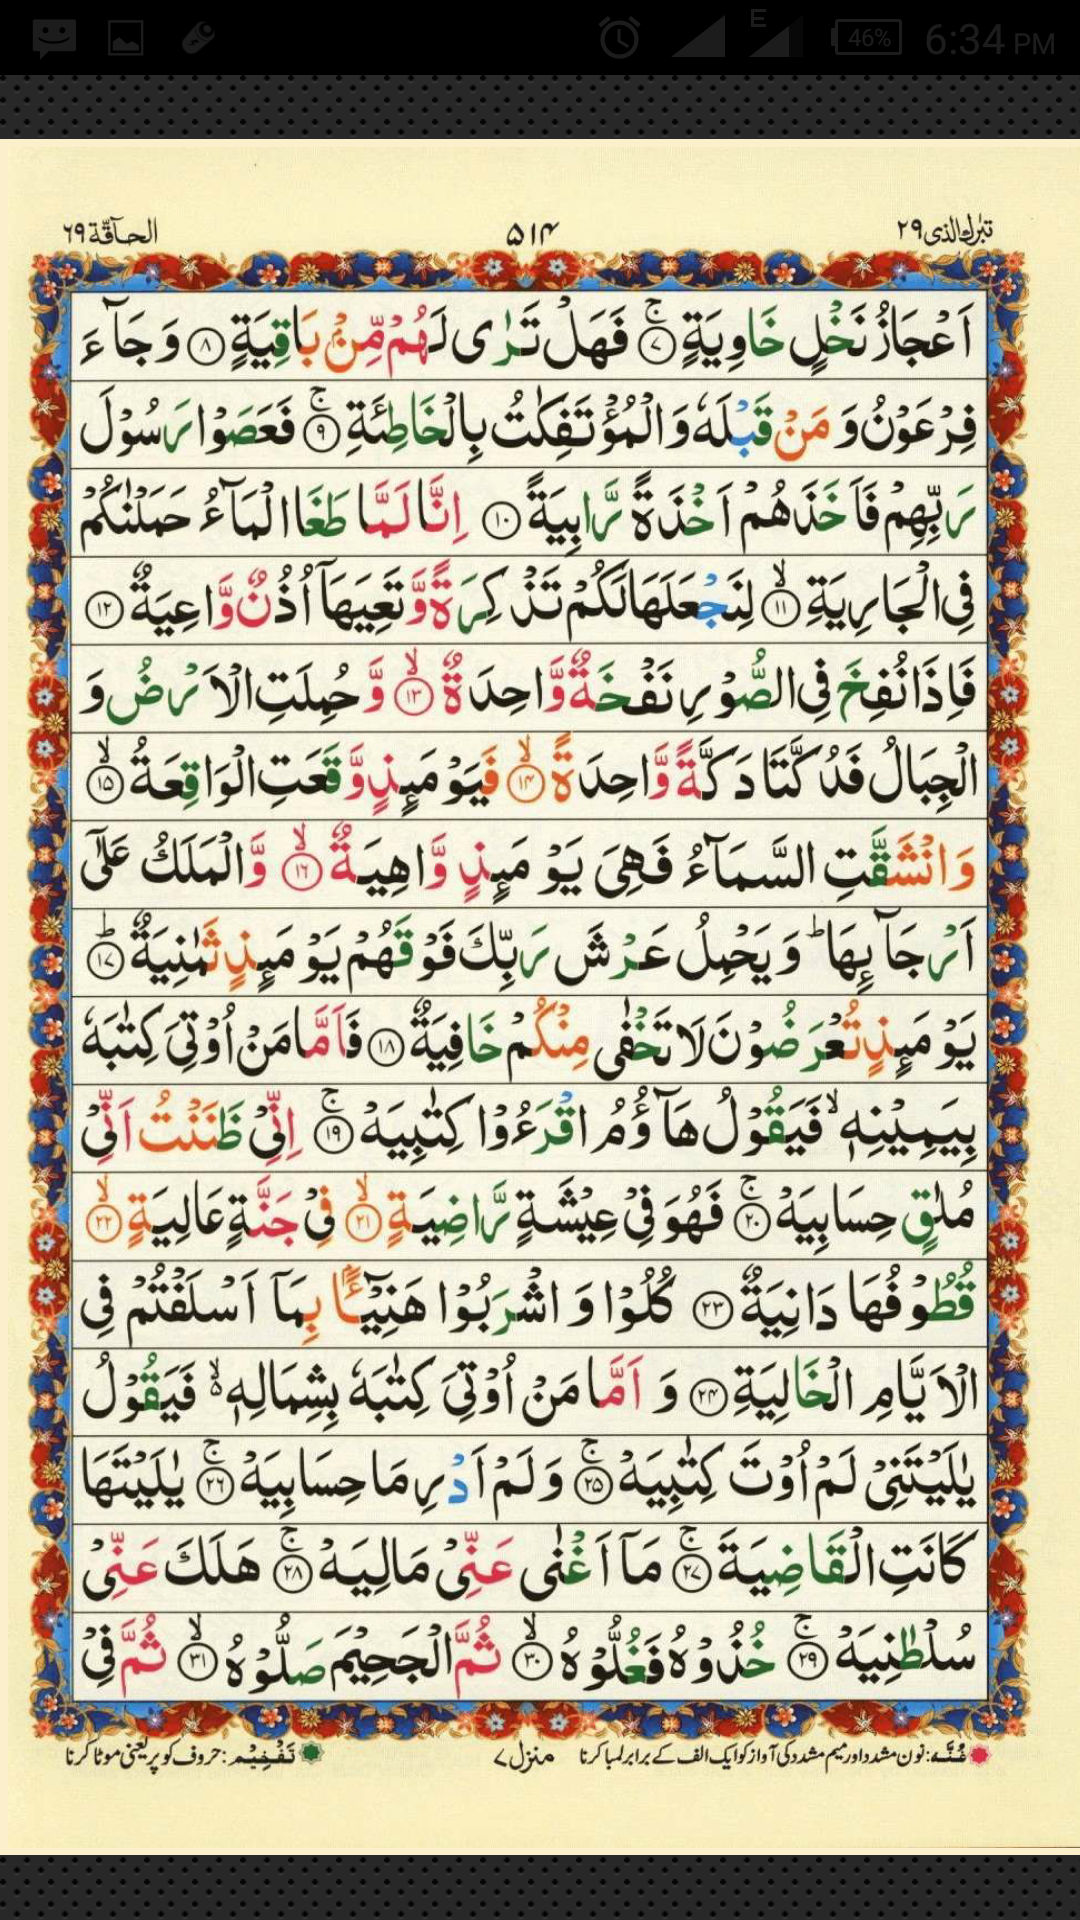 46% 6:34 PM
E
تبٰرك الذی ۲۹ ۵۱۴ الحآقّة ۶۹
اَعْجَازُ نَخْلٍ خَاوِيَةٍ ۚ﴿۷﴾ فَهَلْ تَرٰى لَهُمْ مِّنْۢ بَاقِيَةٍ ﴿۸﴾ وَ جَآءَ
فِرْعَوْنُ وَ مَنْ قَبْلَهٗ وَ الْمُؤْتَفِكٰتُ بِالْخَاطِئَةِ ۚ﴿۹﴾ فَعَصَوْا رَسُوْلَ
رَبِّهِمْ فَاَخَذَهُمْ اَخْذَةً رَّابِيَةً ﴿۱۰﴾ اِنَّا لَمَّا طَغَا الْمَآءُ حَمَلْنٰكُمْ
فِى الْجَارِيَةِ ۙ﴿۱۱﴾ لِنَجْعَلَهَا لَكُمْ تَذْكِرَةً وَّ تَعِيَهَاۤ اُذُنٌ وَّاعِيَةٌ ﴿۱۲﴾
فَاِذَا نُفِخَ فِى الصُّوْرِ نَفْخَةٌ وَّاحِدَةٌ ۙ﴿۱۳﴾ وَّ حُمِلَتِ الْاَرْضُ وَ
الْجِبَالُ فَدُكَّتَا دَكَّةً وَّاحِدَةً ۙ﴿۱۴﴾ فَيَوْمَىِٕذٍ وَّقَعَتِ الْوَاقِعَةُ ۙ﴿۱۵﴾
وَ انْشَقَّتِ السَّمَآءُ فَهِىَ يَوْمَىِٕذٍ وَّاهِيَةٌ ۙ﴿۱۶﴾ وَّ الْمَلَكُ عَلٰۤى
اَرْجَآىِٕهَا ؕ وَ يَحْمِلُ عَرْشَ رَبِّكَ فَوْقَهُمْ يَوْمَىِٕذٍ ثَمٰنِيَةٌ ؕ﴿۱۷﴾
يَوْمَىِٕذٍ تُعْرَضُوْنَ لَا تَخْفٰى مِنْكُمْ خَافِيَةٌ ﴿۱۸﴾ فَاَمَّا مَنْ اُوْتِىَ كِتٰبَهٗ
بِيَمِيْنِهٖ ۙ فَيَقُوْلُ هَآؤُمُ اقْرَءُوْا كِتٰبِيَهْ ۚ﴿۱۹﴾ اِنِّىْ ظَنَنْتُ اَنِّىْ
مُلٰقٍ حِسَابِيَهْ ۚ﴿۲۰﴾ فَهُوَ فِىْ عِيْشَةٍ رَّاضِيَةٍ ۙ﴿۲۱﴾ فِىْ جَنَّةٍ عَالِيَةٍ ۙ﴿۲۲﴾
قُطُوْفُهَا دَانِيَةٌ ﴿۲۳﴾ كُلُوْا وَ اشْرَبُوْا هَنِيْٓـًٔۢا بِمَاۤ اَسْلَفْتُمْ فِى
الْاَيَّامِ الْخَالِيَةِ ﴿۲۴﴾ وَ اَمَّا مَنْ اُوْتِىَ كِتٰبَهٗ بِشِمَالِهٖ ۙ۬ فَيَقُوْلُ
يٰلَيْتَنِىْ لَمْ اُوْتَ كِتٰبِيَهْ ۚ﴿۲۵﴾ وَ لَمْ اَدْرِ مَا حِسَابِيَهْ ۚ﴿۲۶﴾ يٰلَيْتَهَا
كَانَتِ الْقَاضِيَةَ ۚ﴿۲۷﴾ مَاۤ اَغْنٰى عَنِّىْ مَالِيَهْ ۚ﴿۲۸﴾ هَلَكَ عَنِّىْ
سُلْطٰنِيَهْ ۚ﴿۲۹﴾ خُذُوْهُ فَغُلُّوْهُ ۙ﴿۳۰﴾ ثُمَّ الْجَحِيْمَ صَلُّوْهُ ۙ﴿۳۱﴾ ثُمَّ فِىْ
غُنَّه: نون مشدد اور میم مشدد کی آواز کو ایک الف کے برابر لمبا کرنا منزل ۷ تَفْخِيْم: حروف کو پر یعنی موٹا کرنا